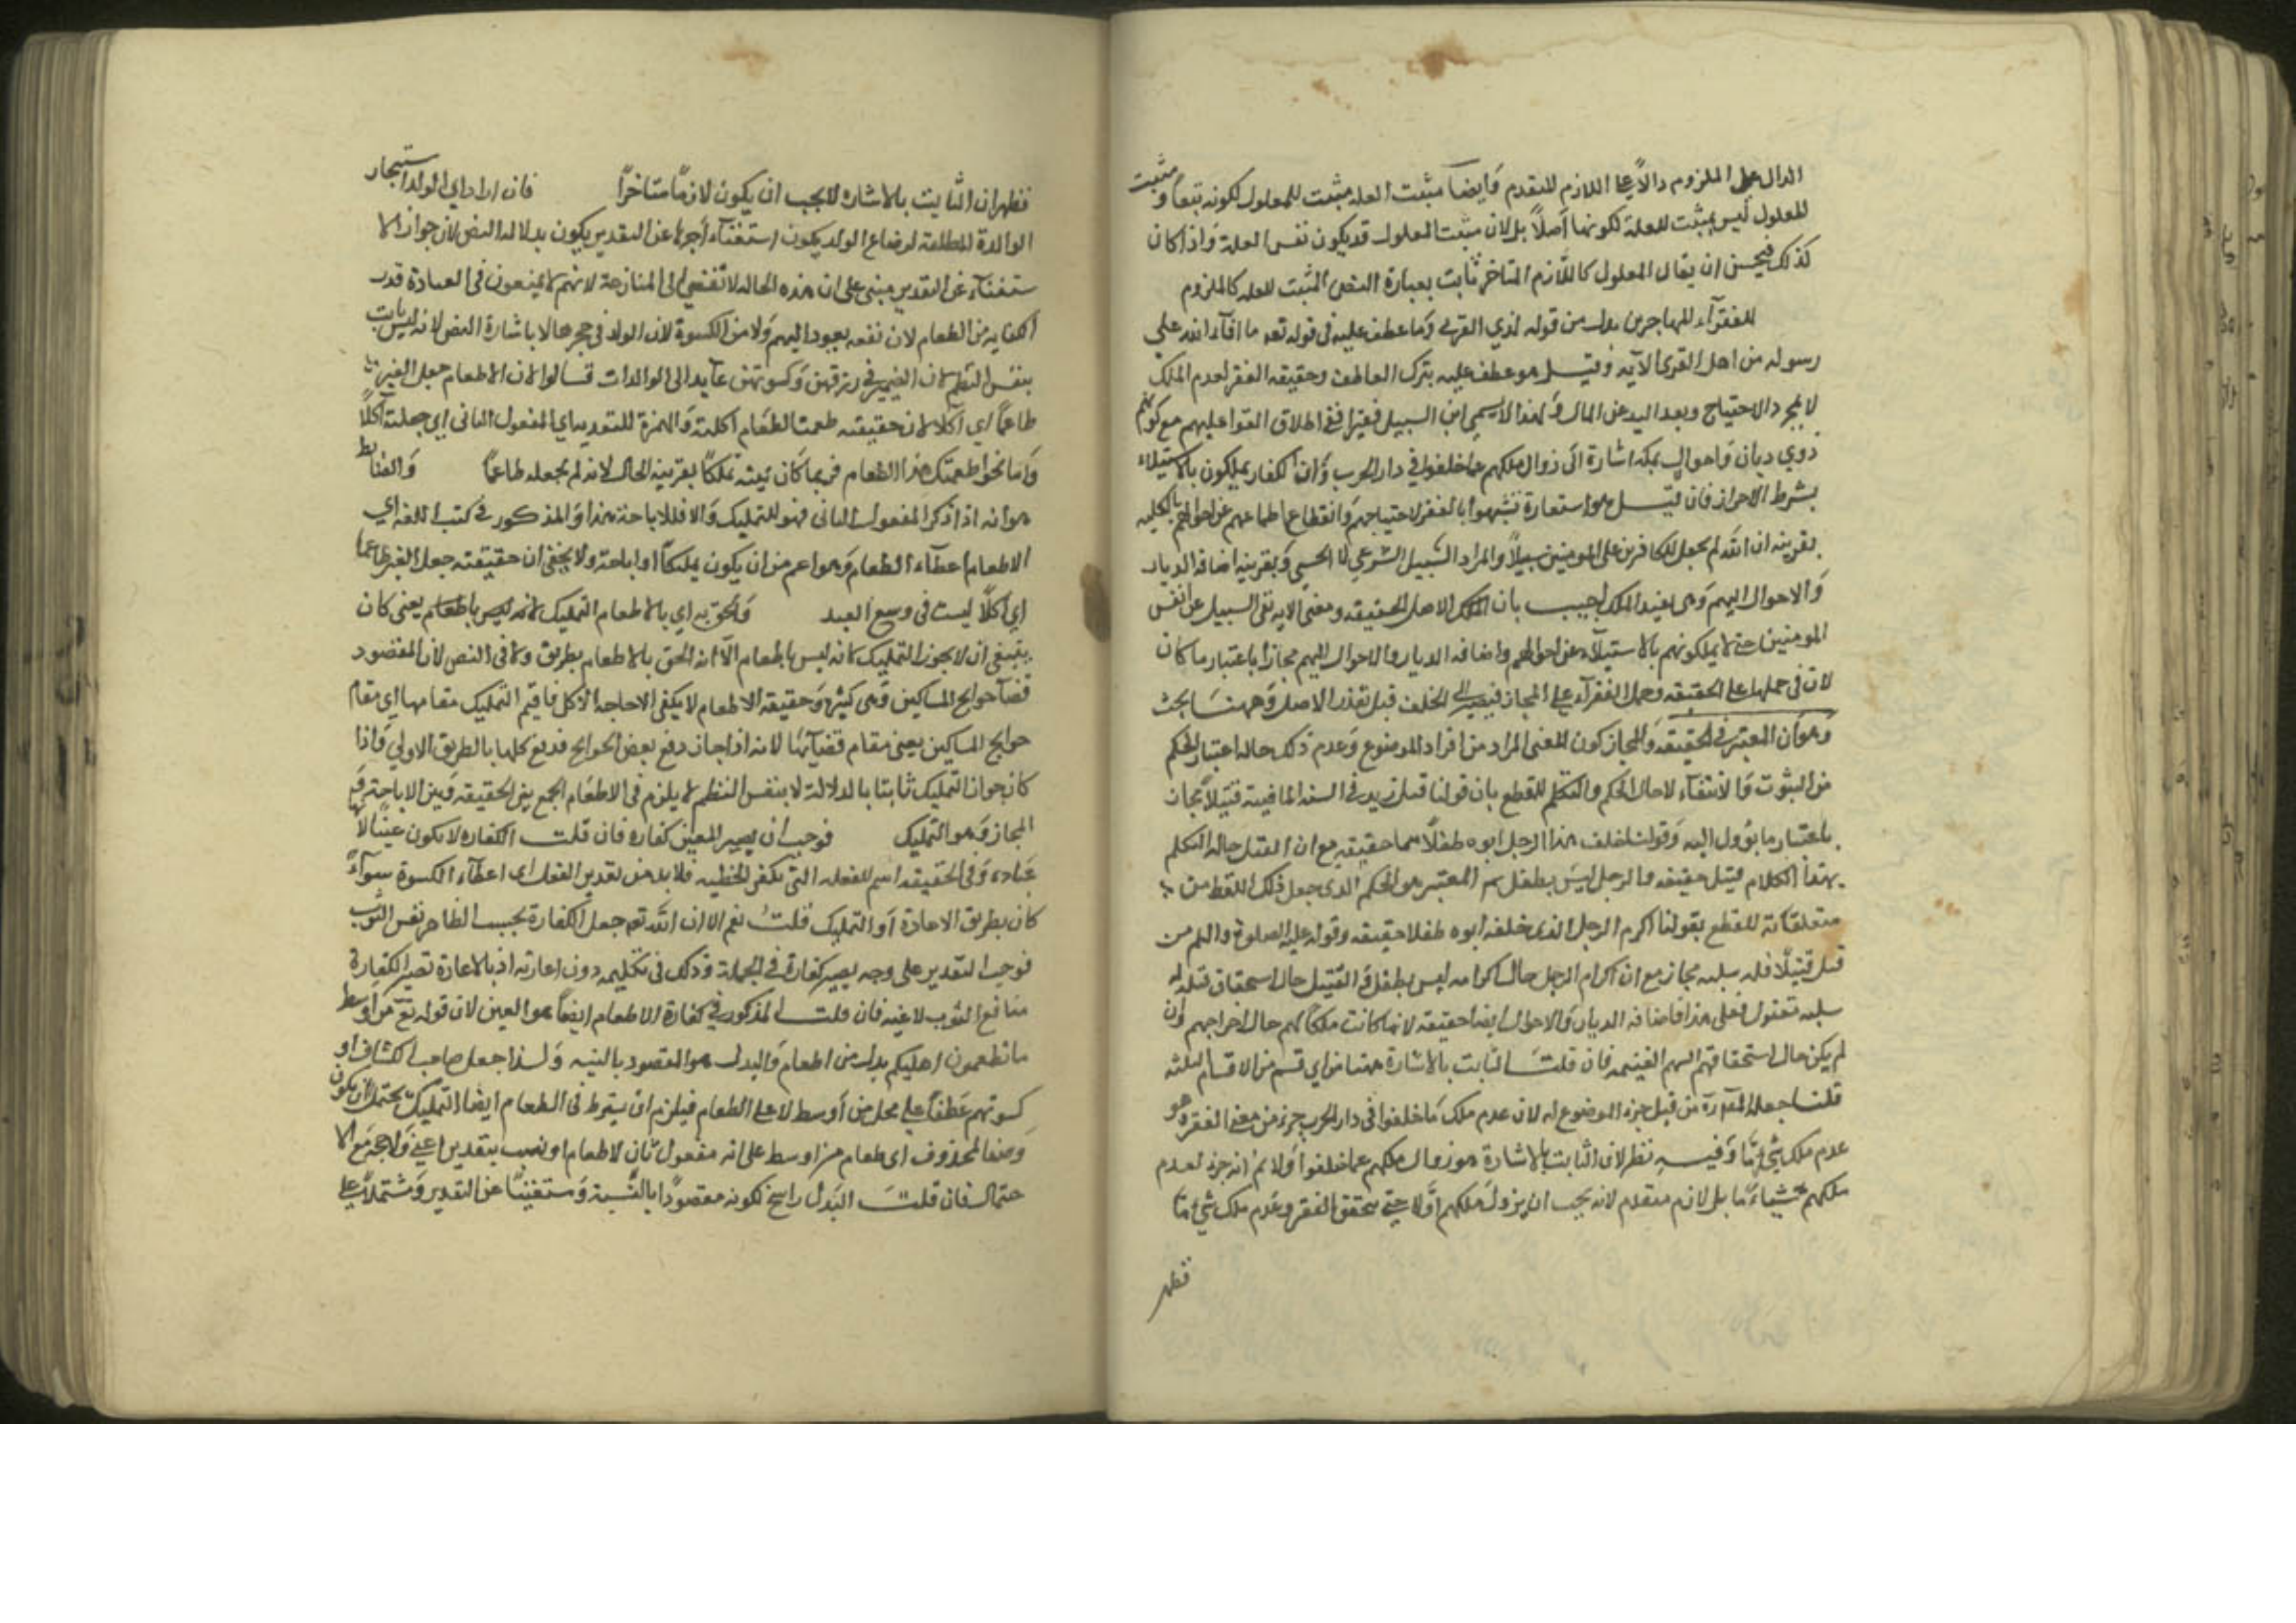 الدال على الملزوم دالا على اللازم المتقدم وأيضا مثبت العلة مثبت للمعلول لكونه تبعا ومثبت
المعلول ليس بمثبت للعلة لكونها أصلا بل لان مثبت المعلول قد يكون نفس العلة واذا كان
كذلك فيحسن ان يقال المعلول كاللازم المتاخر ثابت بعبارة النص المثبت للعلة كالملزوم
للفقرآء المهاجرين بدل من قوله لذي القربى وما عطف عليه في قوله تعه ما افآء الله على
رسوله من اهل القرى الآيه وقيل هو عطف عليه بترك العاطف وحقيقه الفقر لعدم الملك
لا بمجرد الاحتياج وبعد اليد عن المال ولهذا لا يسمى ابن السبيل فقيرا ففي اطلاق الفقرا عليهم مع كونهم
ذوي ديار واموال بمكه اشارة الى زوال ملكهم عما خلفوا في دار الحرب وان الكفار يملكون بالاستيلاء
بشرط الاحراز فان قيل هو استعارة شبهوا بالفقر لاحتياجهم وانقطاع اطماعهم عن اموالهم بالكليه
بقرينه ان الله لم يجعل للكافرين على المومنين سبيلا والمراد السبيل الشرعي لا الحسي وبقرينه اضافه الديار
والاموال اليهم وهي يفيد الملك اجيب بان الاصل الحقيقه ومعنى الايه نفى السبيل عن انفس
المومنين حتى لا يملكونهم بالاستيلآء عن اموالهم واضافه الديار والاموال اليهم مجازا باعتبار ما كان
لان في حملها على الحقيقه وحمل الفقرآء على المجاز فيصير الى الخلف قبل تعذر الاصل وههنا بحث
وهو ان المعتبر في الحقيقه والمجاز كون المعنى المراد من افراد الموضوع وعدم ذلك حاله اعتبار الحكم
من الثبوت والانتفآء لا حال الحكم والتكلم للقطع بان قولنا قتل زيد في السنه الماضيه قتيلا مجاز
باعتبار ما يؤول اليه وقولنا خلف هذا الرجل ابوه طفلا حقيقه مع ان القتل حاله التكلم
بهذا الكلام قتيل حقيقه والرجل ليس بطفل ثم المعتبر هو الحكم الذى جعل ذلك اللفظ من
متعلقاته للقطع بقولنا اكرم الرجل الذى خلفه ابوه طفلا حقيقه وقوله عليه الصلوة والسلم من
قتل قتيلا فله سلبه مجاز مع ان اكرام الرجل حال اكرامه ليس بطفل والقتيل حال استحقاق قتله
سلبه مقتول فعلى هذا فاضافه الديار والاموال ايضا حقيقه لانها كانت ملكا لهم حال اخراجهم وان
لم يكن حال استحقاقهم السهم الغنيمه فان قلت الثابت بالاشارة ههنا من اي قسم من الاقسام الثلثه
قلنا جعله من قبيل جزء الموضوع له لان عدم ملك ما خلفوا في دار الحرب جزء من معنى الفقر وهو
عدم ملك شئ ما وفيه نظر لان الثابت بالاشارة هو زوال ملكهم عما خلفوا ولا ثم انه جزء لعدم
ملكهم شيئا ما بل لازم متقدم لانه يجب ان يزول ملكهم اولا حتى يتحقق الفقر وعدم ملك شئ ما
فظهر
فظهر ان الثابت بالاشارة لا يجب ان يكون لازما متاخرا فان اراد اي الوالد استيجار
الوالدة المطلقة لرضاع الولد يكون استغنآء أجرها عن التقدير يكون بدلاله النص لان جواز الا
ستغنآء عن التقدير مبنى على ان هذه الحاله لا تفضى الى المنازعة لانهم لا يمنعون في العادة قدر
الكفايه من الطعام لان نفعه يعود اليهم ولا من الكسوة لان الولد في حجرها لا باشارة النص لانه ليس ثابت
بنفس النظم لان الضمير في رزقهن وكسوتهن عآيد الى الوالدات قالوا لان الاطعام جعل الغير
طاعما اي آكلا لان حقيقته طعمت الطعام اكلته والهمزة للتعديه اي المفعول الثانى اي جعلته آكلا
واما نحو اطعمتك هذا الطعام فربما كان هبة تملكا بقرينة الحال لانه لم يجعله طاعما والضابط
هو انه اذا ذكر المفعول الثانى فهو للتمليك والا فللاباحة هذا والمذكور في كتب اللغه اي
الاطعام اعطآء الطعام وهو اعم من ان يكون تمليكا او اباحة ولا يخفى ان حقيقته جعل الغير طاعما
اي آكلا ليست في وسع العبد ولحق به اي بالاطعام التمليك لانه ليس باطعام يعنى كان
ينبغى ان لا يجوز التمليك لانه ليس باطعام الا انه الحق بالاطعام بطريق دلالة النص لان المقصود
قضآء حوائج المساكين وهى كثيرة وحقيقة الاطعام لا يكفى الا حاجه الاكل فاقيم التمليك مقامها اي مقام
حوايج المساكين يعنى مقام قضآئها لانه اذا جاز دفع بعض الحوايج فدفع كلها بالطريق الاولى واذا
كان جواز التمليك ثابتا بالدلالة لا بنفس النظم لا يلزم فى الاطعام الجمع بين الحقيقه وبين الاباحة
المجاز وهو التمليك فوجب ان يصير العين كفاره فان قلت الكفاره لا تكون عينا لانها
عبادة وفى الحقيقه اسم للفعله التى تكفر الخطيه فلا بد من تقدير الفعل اى اعطآء الكسوة سوآء
كان بطريق الاعارة أو التمليك قلت نعم الا ان الله تعه جعل الكفارة بحسب الظاهر نفس الثوب
فوجب التقدير على وجه يصير كفارة في الجملة وذلك فى تمليكه دون اعارته اذ بالاعارة تصير الكفارة
منافع الثوب لا عينه فان قلت المذكور في كفارة الاطعام ايضا هو العين لان قوله تع من اوسط
ما تطعمون اهليكم بدل من اطعام والبدل هو المقصود بالنسبه ولذا جعل صاحب الكشاف او
كسوتهم عطفا على محل من أوسط لا على الطعام فيلزم ان يشترط فى الطعام ايضا التمليك يحتمل ان يكون
وصفا لمحذوف اى طعام من اوسط على انه مفعول ثان لاطعام او نصب بتقدير اعنى ولا حجة مع الا
حتمال فان قلت البدل راجح لكونه مقصودا بالنسبة ومستغنيا عن التقدير ومشتملا على